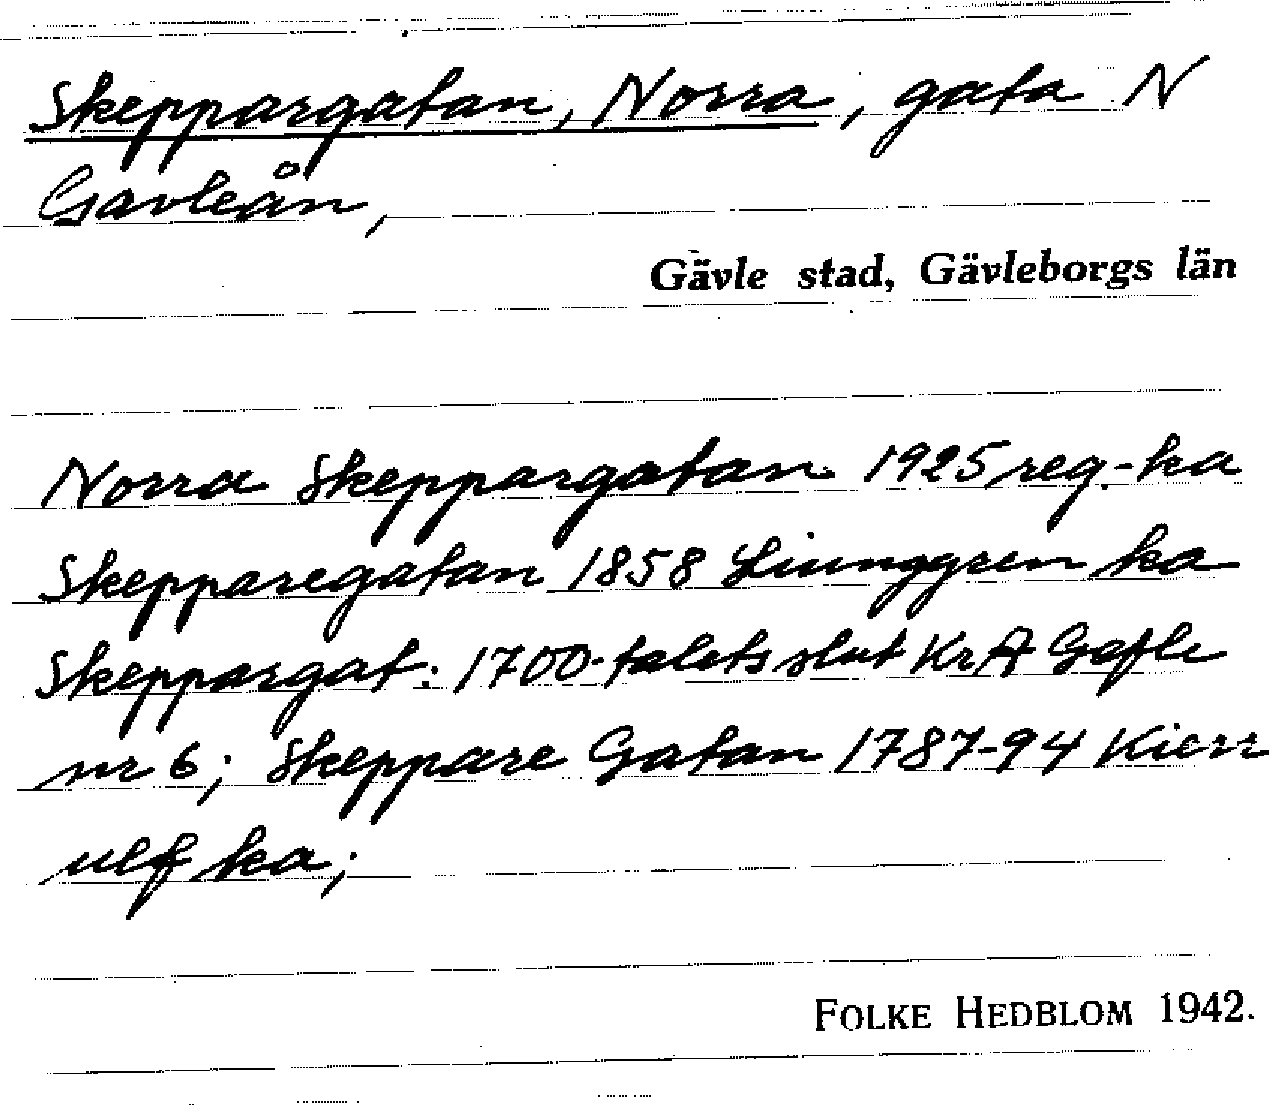 Skeppargatan, Norra, gata N
Gavleån,
Gävle stad, Gävleborgs län
Norra Skeppargatan 1925 reg.-ka
Skepparegatan 1858 Liunggren ka
Skeppargat: 1700-talets slut KrA Gefle
nr 6; Skeppare Gatan 1787-94 Kierr
ulf ka;
FOLKE HEDBLOM 1942.